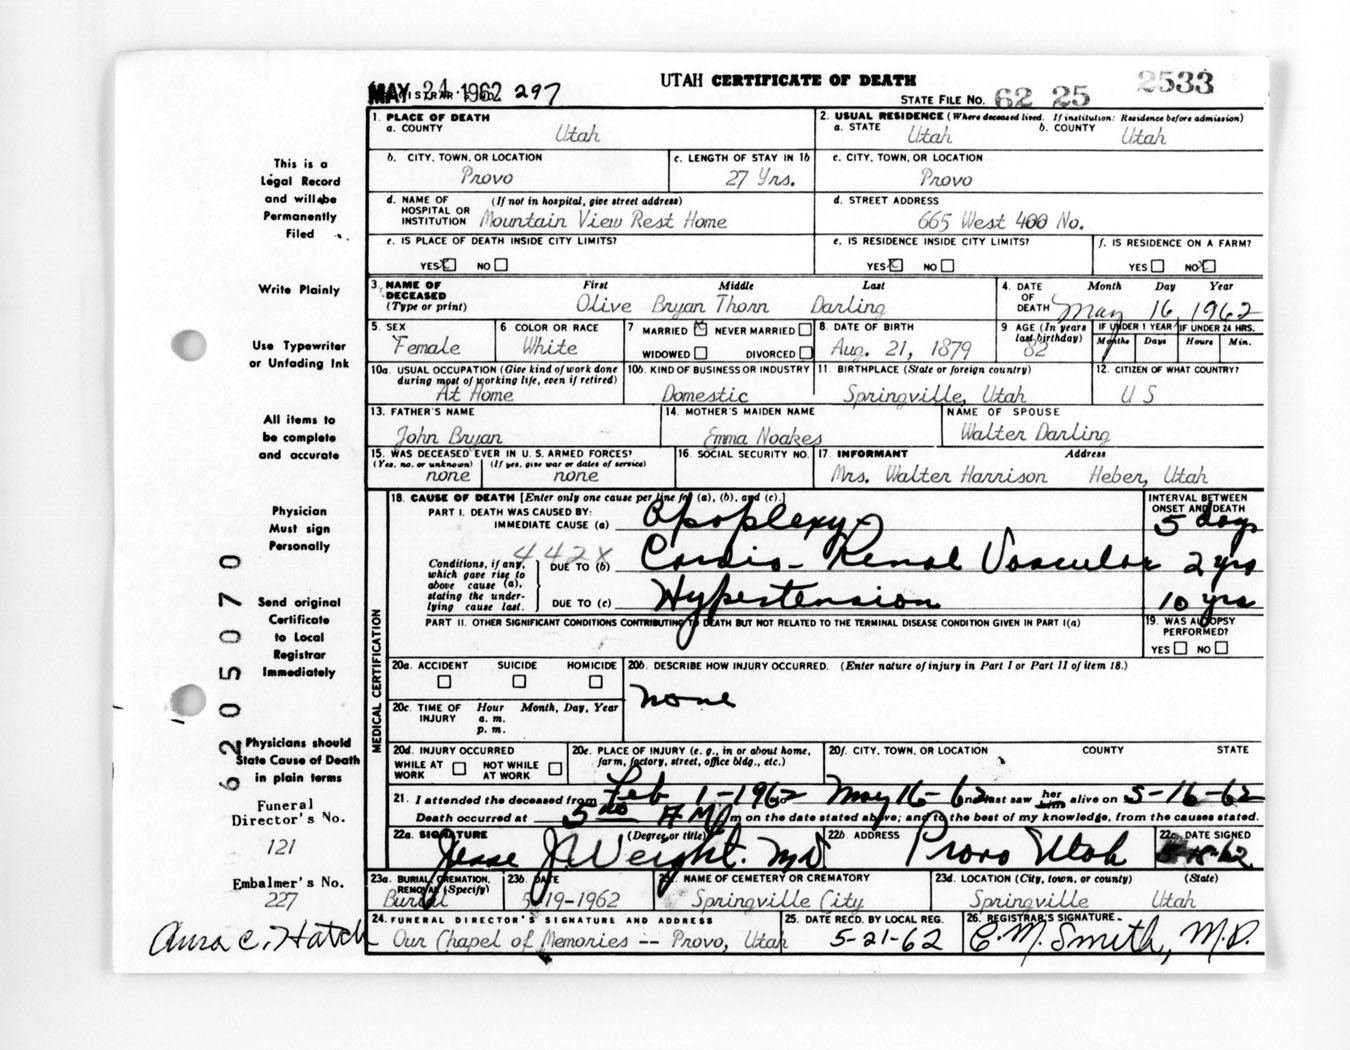 MAY 24 1962 297
UTAH CERTIFICATE OF DEATH
2533
STATE FILE NO. 62 25
1. PLACE OF DEATH
a. COUNTY
Utah
2. USUAL RESIDENCE (Where deceased lived. If institution: Residence before admission)
a. STATE Utah b. COUNTY Utah
b. CITY, TOWN, OR LOCATION
Provo
c. LENGTH OF STAY IN 1b
27 Yrs.
c. CITY, TOWN, OR LOCATION
Provo
d. NAME OF HOSPITAL OR INSTITUTION (If not in hospital, give street address)
Mountain View Rest Home
d. STREET ADDRESS
665 West 400 No.
e. IS PLACE OF DEATH INSIDE CITY LIMITS?
YES NO
e. IS RESIDENCE INSIDE CITY LIMITS?
YES NO
f. IS RESIDENCE ON A FARM?
YES NO
3. NAME OF DECEASED (Type or print)
First Middle Last
Olive Bryan Thorn Darling
4. DATE OF DEATH Month Day Year
May 16, 1962
5. SEX
Female
6 COLOR OR RACE
White
7 MARRIED NEVER MARRIED
WIDOWED DIVORCED
8. DATE OF BIRTH
Aug. 21, 1879
9 AGE (In years last birthday)
82
IF UNDER 1 YEAR
Months Days
IF UNDER 24 HRS.
Hours Min.
10a. USUAL OCCUPATION (Give kind of work done during most of working life, even if retired)
At Home
10b. KIND OF BUSINESS OR INDUSTRY
Domestic
11. BIRTHPLACE (State or foreign country)
Springville, Utah
12. CITIZEN OF WHAT COUNTRY?
U S
13. FATHER'S NAME
John Bryan
14. MOTHER'S MAIDEN NAME
Emma Noakes
NAME OF SPOUSE
Walter Darling
15. WAS DECEASED EVER IN U. S. ARMED FORCES?
(Yes, no, or unknown) (If yes, give war or dates of service)
none none
16. SOCIAL SECURITY NO.
17. INFORMANT Address
Mrs. Walter Harrison Heber, Utah
MEDICAL CERTIFICATION
18. CAUSE OF DEATH [Enter only one cause per line for (a), (b), and (c).]
INTERVAL BETWEEN ONSET AND DEATH
PART I. DEATH WAS CAUSED BY:
IMMEDIATE CAUSE (a) Apoplexy 5 days
442X
Conditions, if any, which gave rise to above cause (a), stating the underlying cause last.
DUE TO (b) Cardio-Renal Vascular 2 yrs
DUE TO (c) Hypertension 10 yrs
PART II. OTHER SIGNIFICANT CONDITIONS CONTRIBUTING TO DEATH BUT NOT RELATED TO THE TERMINAL DISEASE CONDITION GIVEN IN PART I(a)
19. WAS AUTOPSY PERFORMED?
YES NO
20a. ACCIDENT SUICIDE HOMICIDE
20b. DESCRIBE HOW INJURY OCCURRED. (Enter nature of injury in Part I or Part II of item 18.)
none
20c. TIME OF INJURY Hour a. m. p. m. Month, Day, Year
20d. INJURY OCCURRED
WHILE AT WORK NOT WHILE AT WORK
20e. PLACE OF INJURY (e. g., in or about home, farm, factory, street, office bldg., etc.)
20f. CITY, TOWN, OR LOCATION COUNTY STATE
21. I attended the deceased from Feb 1-1962 to May 16-62 and last saw her him alive on 5-16-62
Death occurred at 5 00 A M m on the date stated above; and to the best of my knowledge, from the causes stated.
22a. SIGNATURE (Degree or title)
Jesse J. Weight. MD
22b. ADDRESS
Provo Utah
22c. DATE SIGNED
5-18-62
23a. BURIAL, CREMATION, REMOVAL (Specify)
Burial
23b. DATE
5-19-1962
23c. NAME OF CEMETERY OR CREMATORY
Springville City
23d. LOCATION (City, town, or county) (State)
Springville Utah
24. FUNERAL DIRECTOR'S SIGNATURE AND ADDRESS
Our Chapel of Memories -- Provo, Utah
25. DATE RECD. BY LOCAL REG.
5-21-62
26. REGISTRAR'S SIGNATURE
E. M. Smith, M.D.
This is a
Legal Record
and will be
Permanently
Filed
Write Plainly
Use Typewriter
or Unfading Ink
All items to
be complete
and accurate
Physician
Must sign
Personally
Send original
Certificate
to Local
Registrar
Immediately
Physicians should
State Cause of Death
in plain terms
Funeral
Director's No.
121
Embalmer's No.
227
C. Hatch
62 05070